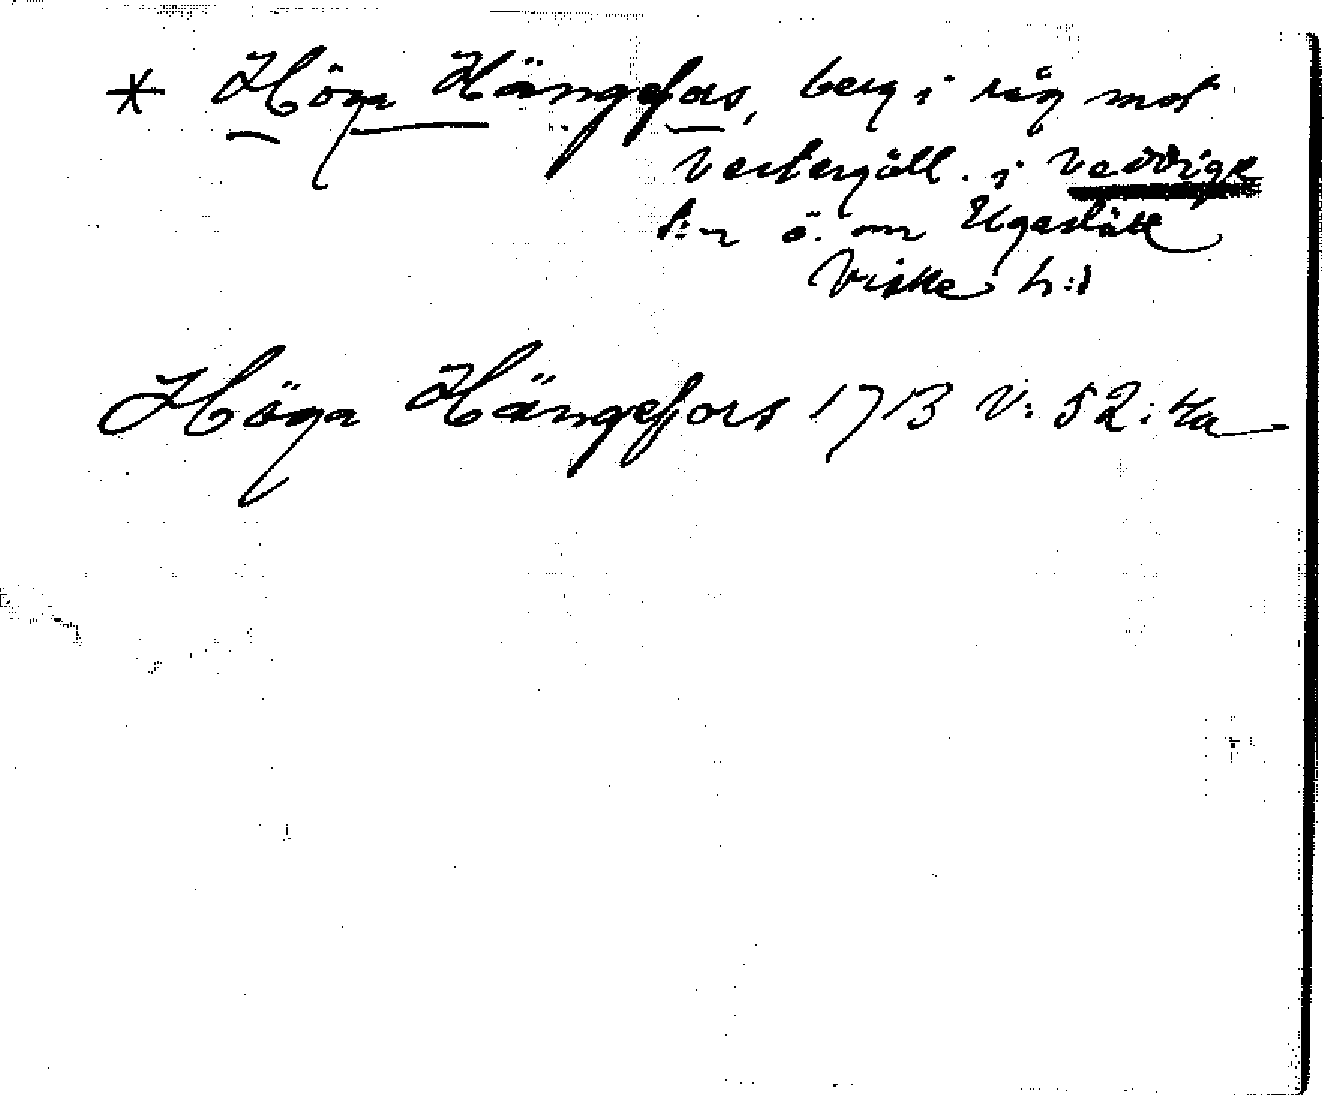 * Höga Hängefors, berg i råg mot
Vestergötl. i Veddige
s:n ö. om Ugeslätt
Viske h:d
Höga Hängefors 1713 V: 52: 4a